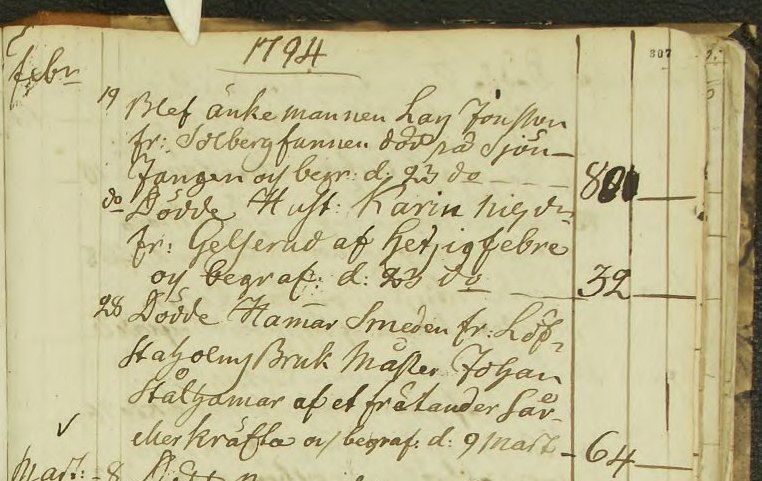 1794
807
febr
19 Blef änke mannen Lars Jonsson
fr: Solberg funnen död på Sjön
och begr: d. 23 do 80
do Dödde Hust: Karin
fr: Gelserud af hetzig febre
och begraf: d: 23 do 32
28 Dödde Hamar Smeden fr: Löf-
staholms Bruk Mäster Johan
Stålhamar af et frätander Sår
eller kräfta och begraf: d: 9 Mart 64
Mart: 8